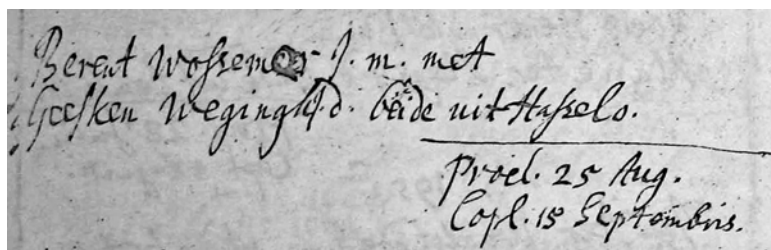 Berent Wossemer J. m. met
Geesken Wegingh J. d. beide uit Hasselo.
Procl. 25 Aug.
Copl. 15 Septembris.